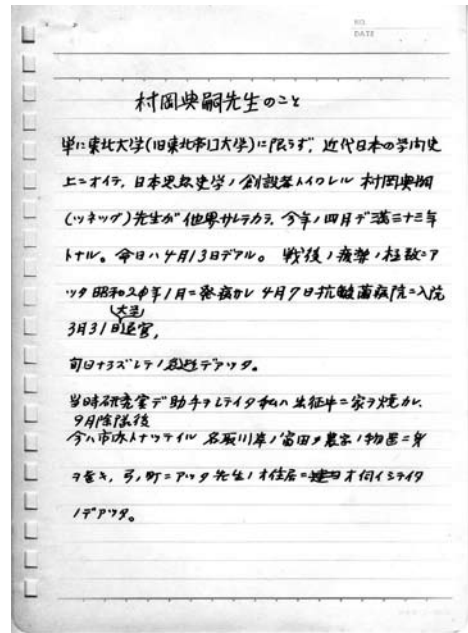 NO.
DATE
村岡典嗣先生のこと
単に東北大学(旧東北帝国大学)に限らず、近代日本の学問史
上ニオイテ、日本思想史学ノ創設者トイワレル 村岡典嗣
(ツネツグ)先生が他界サレテカラ、今年ノ四月デ満三十三年
トナル。今日ハ4月13日デアル。 戦後ノ疲弊ノ極致ニア
ッタ 昭和20年1月ニ発病サレ 4月7日抗酸菌病院ニ入院
大学
3月31日退官、
旬日ナラズシテノ急逝デアッタ。
当時研究室デ助手ヲシテイタ私ハ 出征中ニ家ヲ焼カレ、
9月除隊後
今ハ市内トナッテイル 名取川岸ノ富田ノ農家ノ物置ニ身
ヲ置キ、弓ノ町ニアッタ先生ノオ住居ニオ伺イシテイタ
ノデアッタ。